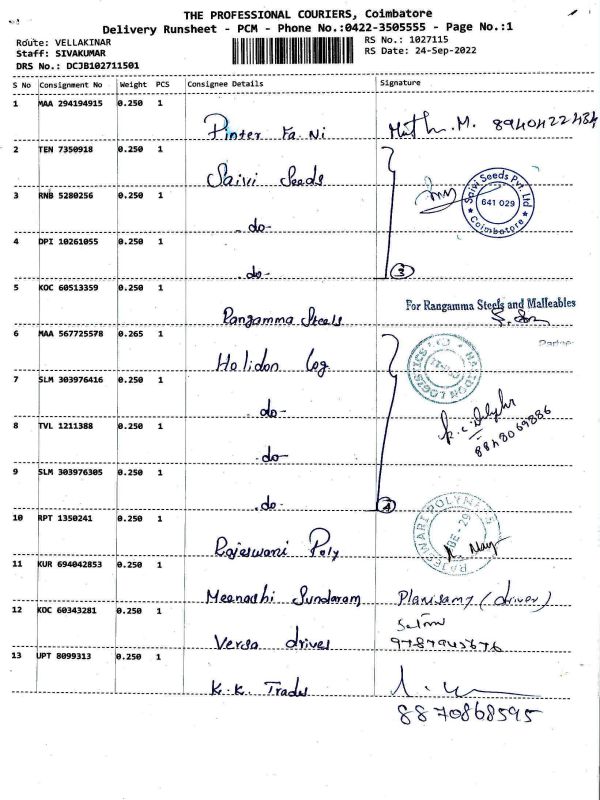 THE PROFESSIONAL COURIERS, Coimbatore
Delivery Runsheet - PCM - Phone No.:0422-3505555 - Page No.:1
Route: VELLAKINAR
RS No.: 1027115
Staff: SIVAKUMAR
RS Date: 24-Sep-2022
DRS No.: DCJB102711501
S No Consignment No Weight PCS Consignee Details Signature
1 MAA 294194915 0.250 1
8940422484
2 TEN 7350918 0.250 1
Saivi Seeds
Saivi Seeds Pvt. Ltd
641 029
Coimbatore
3 RNB 5280256 0.250 1
- do-
4 DPI 10261055 0.250 1
- do-
3
5 KOC 60513359 0.250 1
For Rangamma Steels and Malleables
Rangamma Steels
6 MAA 567725578 0.265 1
Partner
Halidon Log
HALIDON LOGISTICS
7 SLM 303976416 0.250 1
- do-
8 TVL 1211388 0.250 1
8848069886
- do-
9 SLM 303976305 0.250 1
- do-
4
10 RPT 1350241 0.250 1
RAJESWARI POLYM
Rajeswari Poly
11 KUR 694042853 0.250 1
Meenachi Sundaram
(driver)
12 KOC 60343281 0.250 1
Versa drives
13 UPT 8099313 0.250 1
K.K. Trades
8870868595